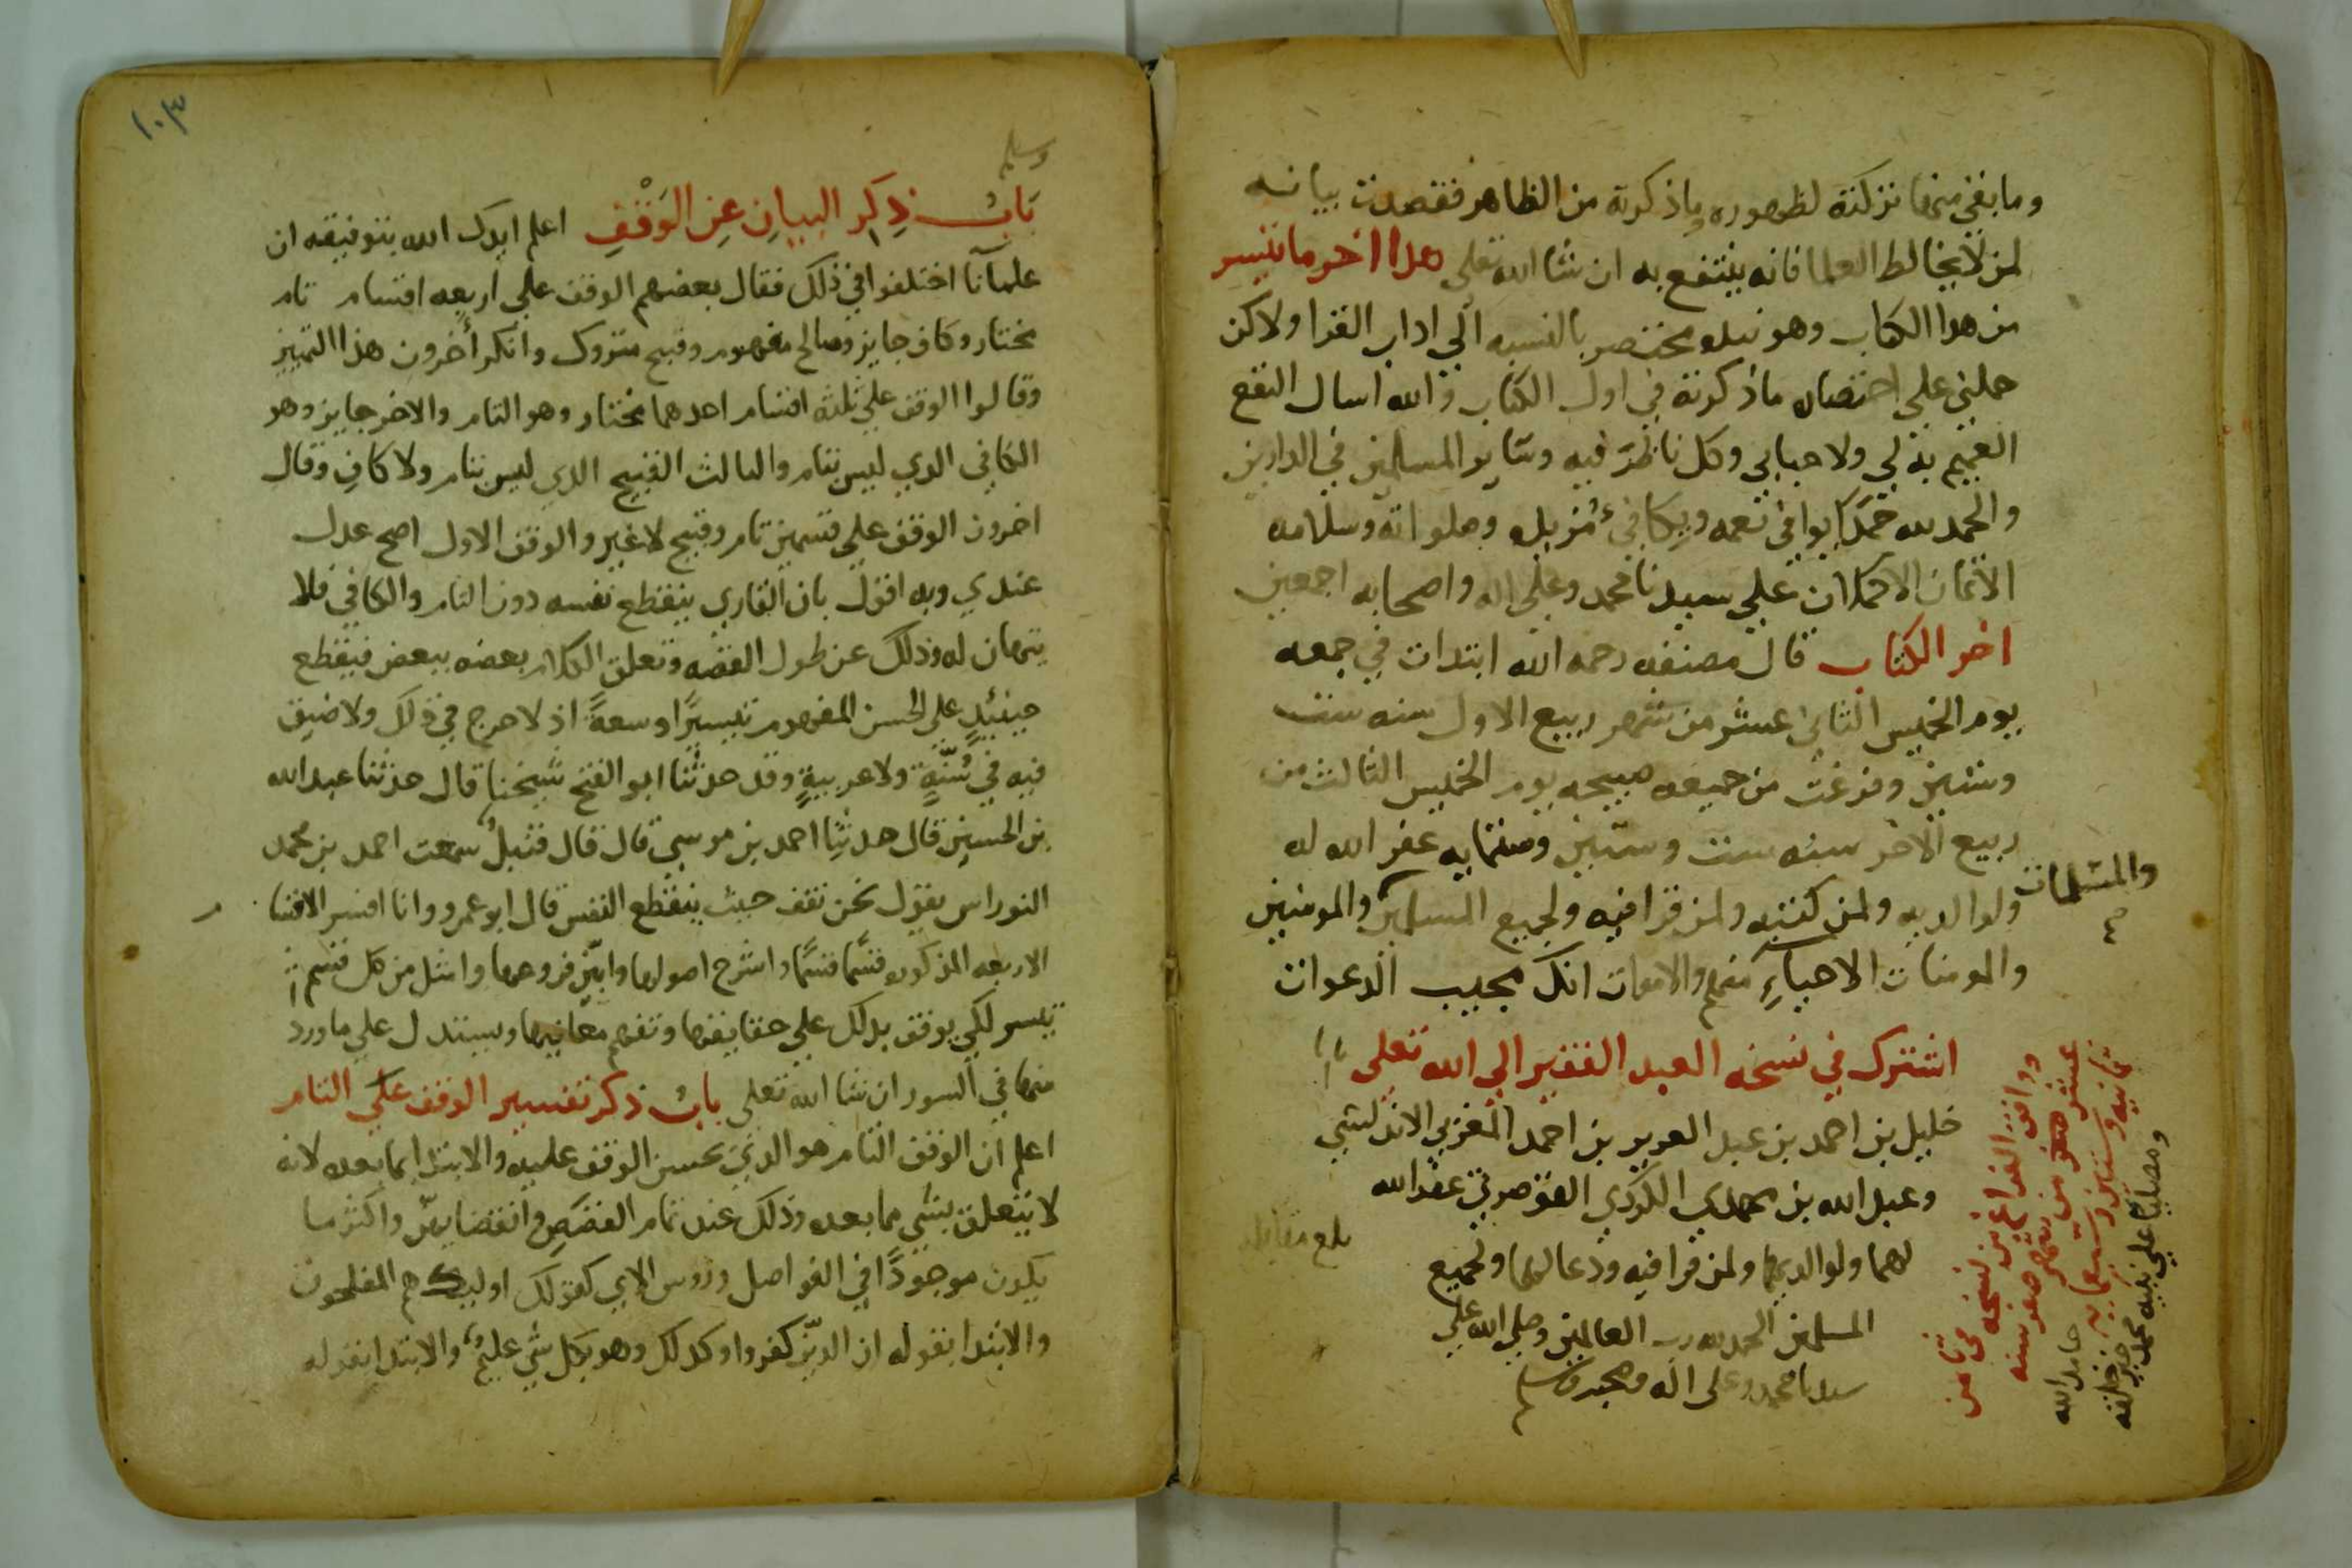 وما بقي منها تركته لظهوره وما ذكرته من الظاهر فقصدت بيانه
لمن لا يخالط العلما فانه ينتفع به ان شا الله تعلى هذا اخر ما تيسر
من هذا الكتاب وهو مختصر بالنسبه الي اداب القرا ولاكن
حملني علي اختصاره ما ذكرته في اول الكتاب والله اسال النفع
العميم به لي ولاحبابي وكل ناظر فيه وسائر المسلمين في الدارين
والحمد لله حمدا يوافي نعمه ويكافئ مزيده وصلواته وسلامه
الاتمان الاكملان علي سيدنا محمد وعلي اله واصحابه اجمعين
اخر الكتاب قال مصنفه رحمه الله ابتدات في جمعه
يوم الخميس الثاني عشر من شهر ربيع الاول سنه ست
وستين وفرغت من جميعه صبيحه يوم الخميس الثالث من
ربيع الاخر سنه ست وستين وستمايه غفر الله له
ولوالديه ولمن كتبه ولمن قرا فيه ولجميع المسلمين والمومنين
والمسلمات
صح
والمومنات الاحياء منهم والاموات انك مجيب الدعوات
اشترك في نسخه العبد الفقير الي الله تعلى
خليل بن احمد بن عبد العزيز بن احمد المغربي الاندلسي
وعبد الله بن محمدي الكردي القوصرتي عفر الله
لهما ولوالديهما ولمن قرا فيه ودعا لهما ولجميع
المسلمين الحمد لله رب العالمين وصلي الله علي
سيدنا محمد وعلى اله وصحبه وسلم
بلغ مقابله
ووافق الفراغ من نسخه في ثامن
عشر صفر من شهر صفر سنه
ثمانيه وستين وسبعمايه حامدا لله
ومصليا علي نبيه محمد خير خلقه
١٠٣
وسلم
باب ذكر البيان عن الوقف اعلم ايدك الله بتوفيقه ان
علمآنا اختلفوا في ذلك فقال بعضهم الوقف علي اربعه اقسام تام
مختار وكاف جايز وصالح مفهوم وقبيح متروك وانكر أخرون هذا التمييز
وقالوا الوقف علي ثلثه اقسام احدهما مختار وهو التام والاخر جايز وهو
الكافي الدي ليس بتام والثالث القبيح الدي ليس بتام ولا كاف وقال
اخرون الوقف علي قسمين تام وقبيح لا غير والوقف الاول اصح عدل
عندي وبه اقول بان القاري ينقطع نفسه دون التام والكافي فلا
يتهيان له وذلك عن طول القصه وتعلق الكلام بعضه ببعض فيقطع
حينئذ علي الحسن المفهوم تيسيرا وسعة اذ لا حرج في ذلك ولا ضيق
فيه في سنة ولا عربية وقد حدثنا ابو الفتح شيخنا قال حدثنا عبد الله
بن الحسين قال حدثنا احمد بن موسي قال قال قنبل سمعت احمد بن محمد
القواس يقول نحن نقف حيث ينقطع النفس قال ابو عمرو وانا افسر الاقسا م
الاربعه المذكوره قسما قسما واشرح اصولها وابين فروعها وامثل من كل قسم
تيسر لكي يوقف بدلك علي حقايقها وتفهم معانيها ويستدل علي ما ورد
منها في السور ان شا الله تعلى باب ذكر تفسير الوقف علي التام
اعلم ان الوقف التام هو الدي يحسن الوقف عليه والابتدا بما بعده لانه
لا يتعلق بشي مما بعده وذلك عند تمام القصص وانقضايهن واكثر ما
يكون موجودا في الفواصل وروس الاي كقولك اوليك هم المفلحون
والابتدا بقوله ان الدين كفروا وكدلك وهو بكل شي عليم والابتدا بقوله